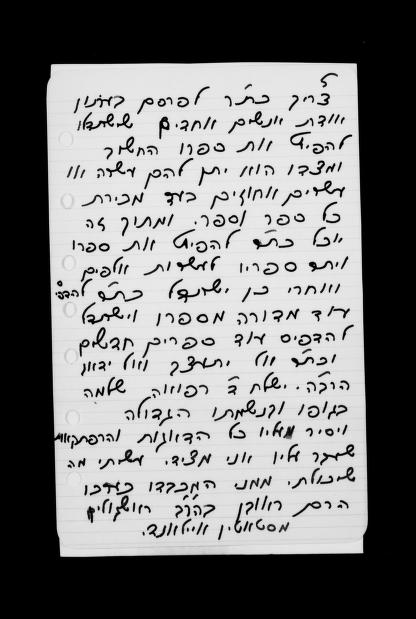 צריך כת"ר לפרסם בעתון
אודת אנשים אחדים שישתדלו
להפיץ את ספרו החשוב
ומצדו הוא יתן להם עשרה או
עשרים אחוזים בעד מכירת
כל ספר וספר. ומתוך זה
יוכל כת"ר להפיץ את ספרו
ויתר ספריו לעשרות אלפים
ואחרי כן ישתדל כת"ר להדפיס
עוד מדורה מספרו וישתדל
להדפיס עוד ספרים חדשים
וכת"ר אל יתעצב ואל ידאג
הרבה. ישלח ד' רפואה שלמה
בגופו ובנשמתו הגדולה
ויסיר מעליו כל הדאגות והרפתקאות
שעבר עליו אני מצידי עשיתי מה
שיכולתי. ממני המכבדו כערכו
הרס ראובן בהר"ב
מסטאטין איילאנד.